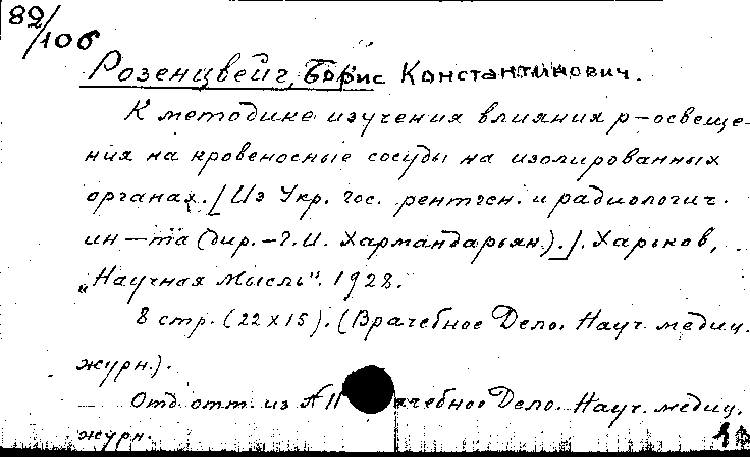 82/106
Розенцвейг, Борис Константинович.
К методике изучения влияния р-освеще-
ния на кровеносные сосуды на изолированных
органах. [Из Укр. гос. рентген. и радиологич.
ин-та (дир. - Г.И. Хармандарьян).]. Харьков,
„Научная Мысль". 1928.
8 стр. (22x15). (Врачебное Дело. Науч. медиц.
журн.).
Отд. отт. из № 11 Врачебное Дело. Науч. медиц.
журн.